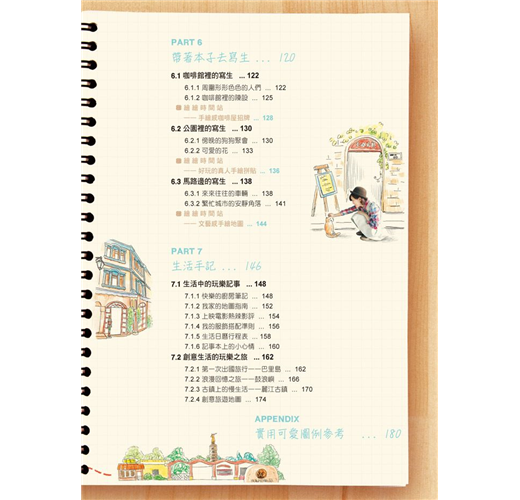 PART 6
帶著本子去寫生 ... 120
6.1 咖啡館裡的寫生 ... 122
6.1.1 周圍形形色色的人們 ... 122
6.1.2 咖啡館裡的陳設 ... 125
繪繪時間站
——手繪感咖啡屋招牌 ... 128
6.2 公園裡的寫生 ... 130
6.2.1 傍晚的狗狗聚會 ... 130
6.2.2 可愛的花 ... 133
繪繪時間站
——好玩的真人手繪拼貼 ... 136
6.3 馬路邊的寫生 ... 138
6.3.1 來來往往的車輛 ... 138
6.3.2 繁忙城市的安靜角落 ... 141
繪繪時間站
——文藝感手繪地圖 ... 144
PART 7
生活手記 ... 146
7.1 生活中的玩樂記事 ... 148
7.1.1 快樂的廚房筆記 ... 148
7.1.2 我家的地圖指南 ... 152
7.1.3 上映電影熱辣影評 ... 154
7.1.4 我的服飾搭配準則 ... 156
7.1.5 生活日曆行程表 ... 158
7.1.6 記事本上的小心情 ... 160
7.2 創意生活的玩樂之旅 ... 162
7.2.1 第一次出國旅行——巴里島 ... 162
7.2.2 浪漫回憶之旅——鼓浪嶼 ... 166
7.2.3 古鎮上的慢生活——麗江古鎮 ... 170
7.2.4 創意旅遊地圖 ... 174
APPENDIX
實用可愛圖例參考 ... 180